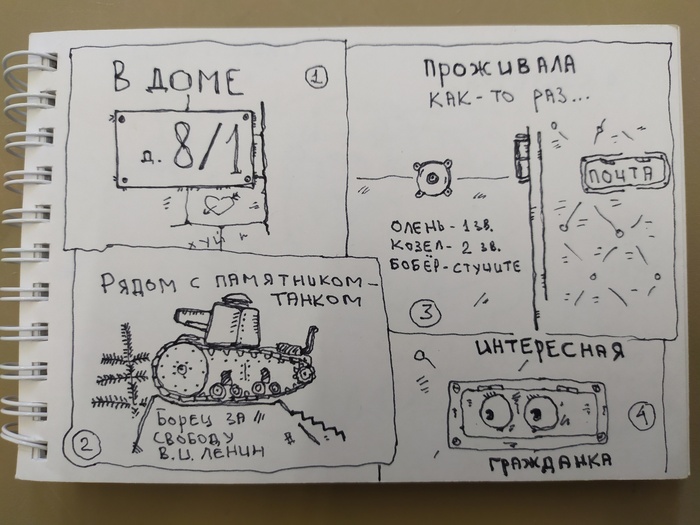 В ДОМЕ
1
д. 8/1
ХУЙ
РЯДОМ С ПАМЯТНИКОМ-
ТАНКОМ
БОРЕЦ ЗА
СВОБОДУ
В.И. ЛЕНИН
2
ПРОЖИВАЛА
КАК-ТО РАЗ...
ПОЧТА
ОЛЕНЬ - 1 ЗВ.
КОЗЕЛ - 2 ЗВ.
БОБЁР - СТУЧИТЕ
3
ИНТЕРЕСНАЯ
4
ГРАЖДАНКА